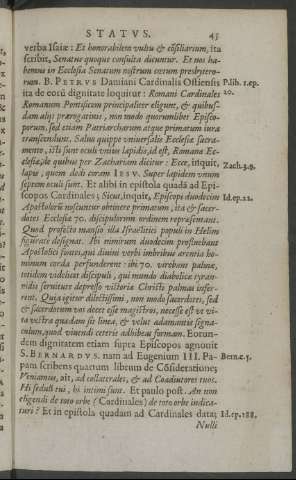 STATVS. 43
verba Isaiæ: Et honorabilem vultu & cõsiliarium, ita
scribit, Senatus quoque consulta dicuntur. Et nos ha-
bemus in Ecclesia Senatum nostrum cœtum presbytero-
rum. B. PETRVS Damiani Cardinalis Ostiensis P. lib. 1. ep.
ita de eorũ dignitate loquitur: Romani Cardinales 20.
Romanum Pontificem principaliter eligunt, & quibus-
dam alijs prærogatiuis, non modo quorumlibet Episco-
porum, sed etiam Patriarcharum atque primatum iura
transcendunt. Saluo quippe vniuersalis Ecclesiæ sacra-
mento, isti sunt oculi vnius lapidis, id est, Romanæ Ec-
clesiæ, de quibus per Zachariam dicitur: Ecce, inquit, Zach. 3.9.
lapis, quem dedi coram IESV. Super lapidem vnum
septem oculi sunt. Et alibi in epistola quadã ad Epi-
scopos Cardinales; Sicut, inquit, Episcopi duodecim Id. ep. 12.
Apostolorũ noscuntur obtinere primatum, ita & sacer-
dotes Ecclesiæ 70. discipulorum ordinem repræsentant.
Quod profecto mansio illa Israelitici populi in Helim
figurauit designat. Ibi nimirum duodecim profluebant
Apostolici fontes, qui diuini verbi imbribus arentia ho-
minum corda perfunderent: ibi 70. virebant palmæ,
totidem videlicet discipuli, qui mundo diabolicæ tyran-
nidis seruitute depresso victoriæ Christi palmas infer-
rent. Quia igitur dilectissimi, non modo sacerdotes, sed
& sacerdotum vos decet esse magistros, necesse est vt vi-
ta vestra quadam sit linea, & velut adamantis signa-
culum, quod viuendi ceteris adhibeat formam. Eorum-
dem dignitatem etiam supra Episcopos agnouit
S. BERNARDVS. nam ad Eugenium III. Pa- Bern. c. 5.
pam scribens quartum librum de Cõsideratione;
Veniamus, ait, ad collaterales, & ad Coadiutores tuos.
Hi seduli tui, hi intimi sunt. Et paulo post. An non
eligendi de toto orbe (Cardinales) de toto orbe indica-
turi? Et in epistola quadam ad Cardinales data; Id. ep. 188.
Nulli